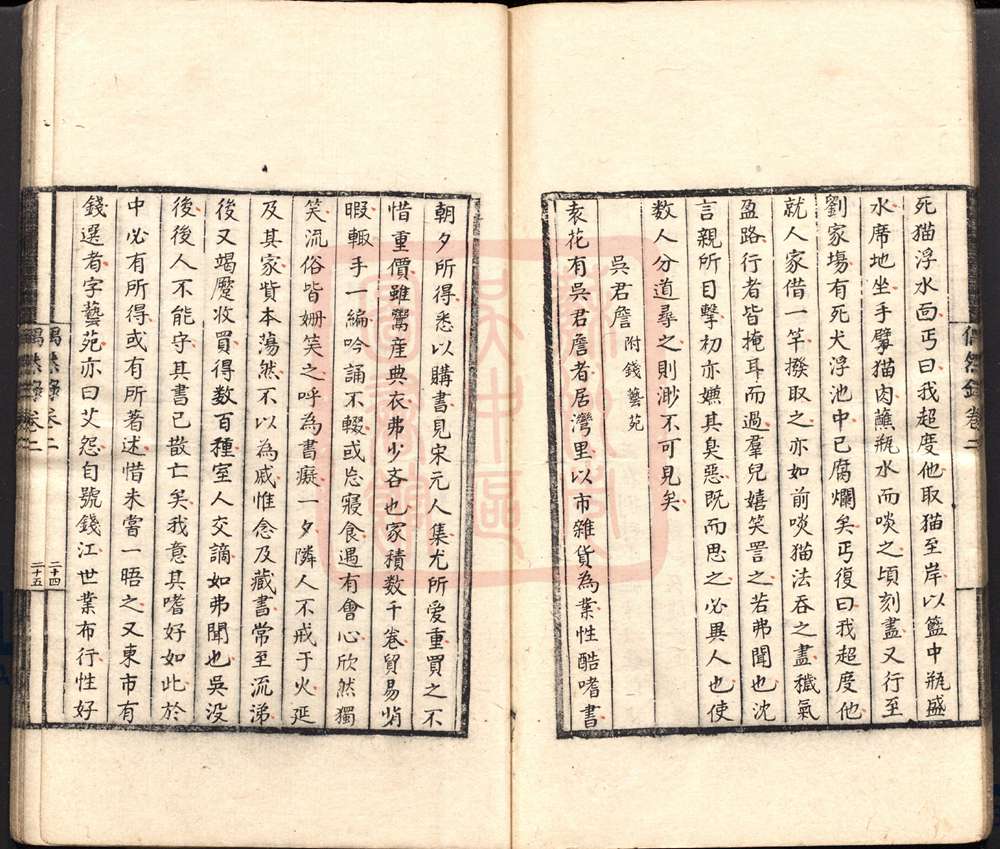 死猫浮水面丐曰我超度他取猫至岸以籃中瓶盛
水席地坐手擘猫肉蘸瓶水而啖之頃刻盡又行至
劉家塲有死犬浮池中已腐爛矣丐復曰我超度他
就人家借一竿撥取之亦如前啖猫法吞之盡穢氣
盈路行者皆掩耳而過羣兒嬉笑詈之若弗聞也沈
言親所目擊初亦嫌其臭惡既而思之必異人也使
数人分道尋之則渺不可見矣
吳君詹 附錢藝苑
袁花有吳君詹者居灣里以市雜貨為業性酷嗜書
朝夕所得悉以購書見宋元人集尤所愛重買之不
惜重價雖鬻産典衣弗少吝也家積数千卷貿易悄
暇輙手一編吟誦不輟或忘寢食遇有會心欣然獨
笑流俗皆姍笑之呼為書癡一夕隣人不戒于火延
及其家貲本蕩然不以為戚惟念及藏書常至流涕
後又竭蹷收買得数百種室人交謫如弗聞也吳没
後後人不能守其書已散亡矣我意其嗜好如此於
中必有所得或有所著述惜未嘗一晤之又東市有
錢選者字藝苑亦曰艾怨自號錢江世業布行性好
偶然錄卷二
二十四
偶然錄卷二
二十五